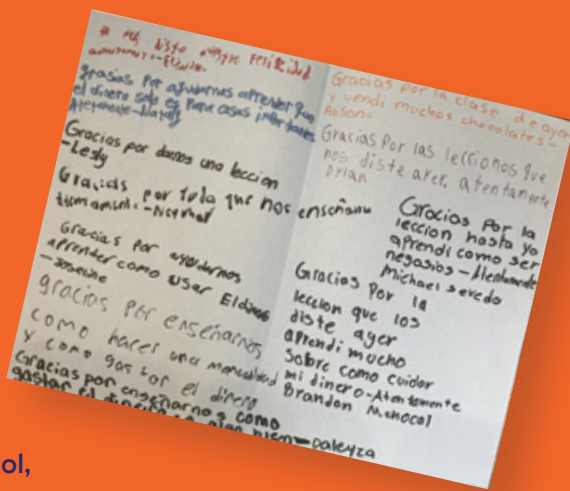 nos disto mucho Felicidad
grasias Por ayudarnos aprender que
el dinero solo es Para cosas importantes
Gracias por darnos una leccion
-Lesly
Gracias por todo que nos enseñaron
Gracias por ayudarnos
aprender como user El dinero
gracias por enseñarnos
como hacer una
y como gastar el dinero
Gracias por enseñarnos como
gastar el dinero en algo bien-Daleyza
Gracias por la clase de ayer
y vendi muchos chocolates-
Gracias Por las lecciones que
nos diste ayer, atentamente
Gracias Por la
leccion hasta yo
aprendi como ser
negasios-Atentamente
Michael
Gracias Por la
leccion que los
diste ayer
aprendi mucho
sobre como cuidar
mi dinero-Atentamente
Brandon
ol,